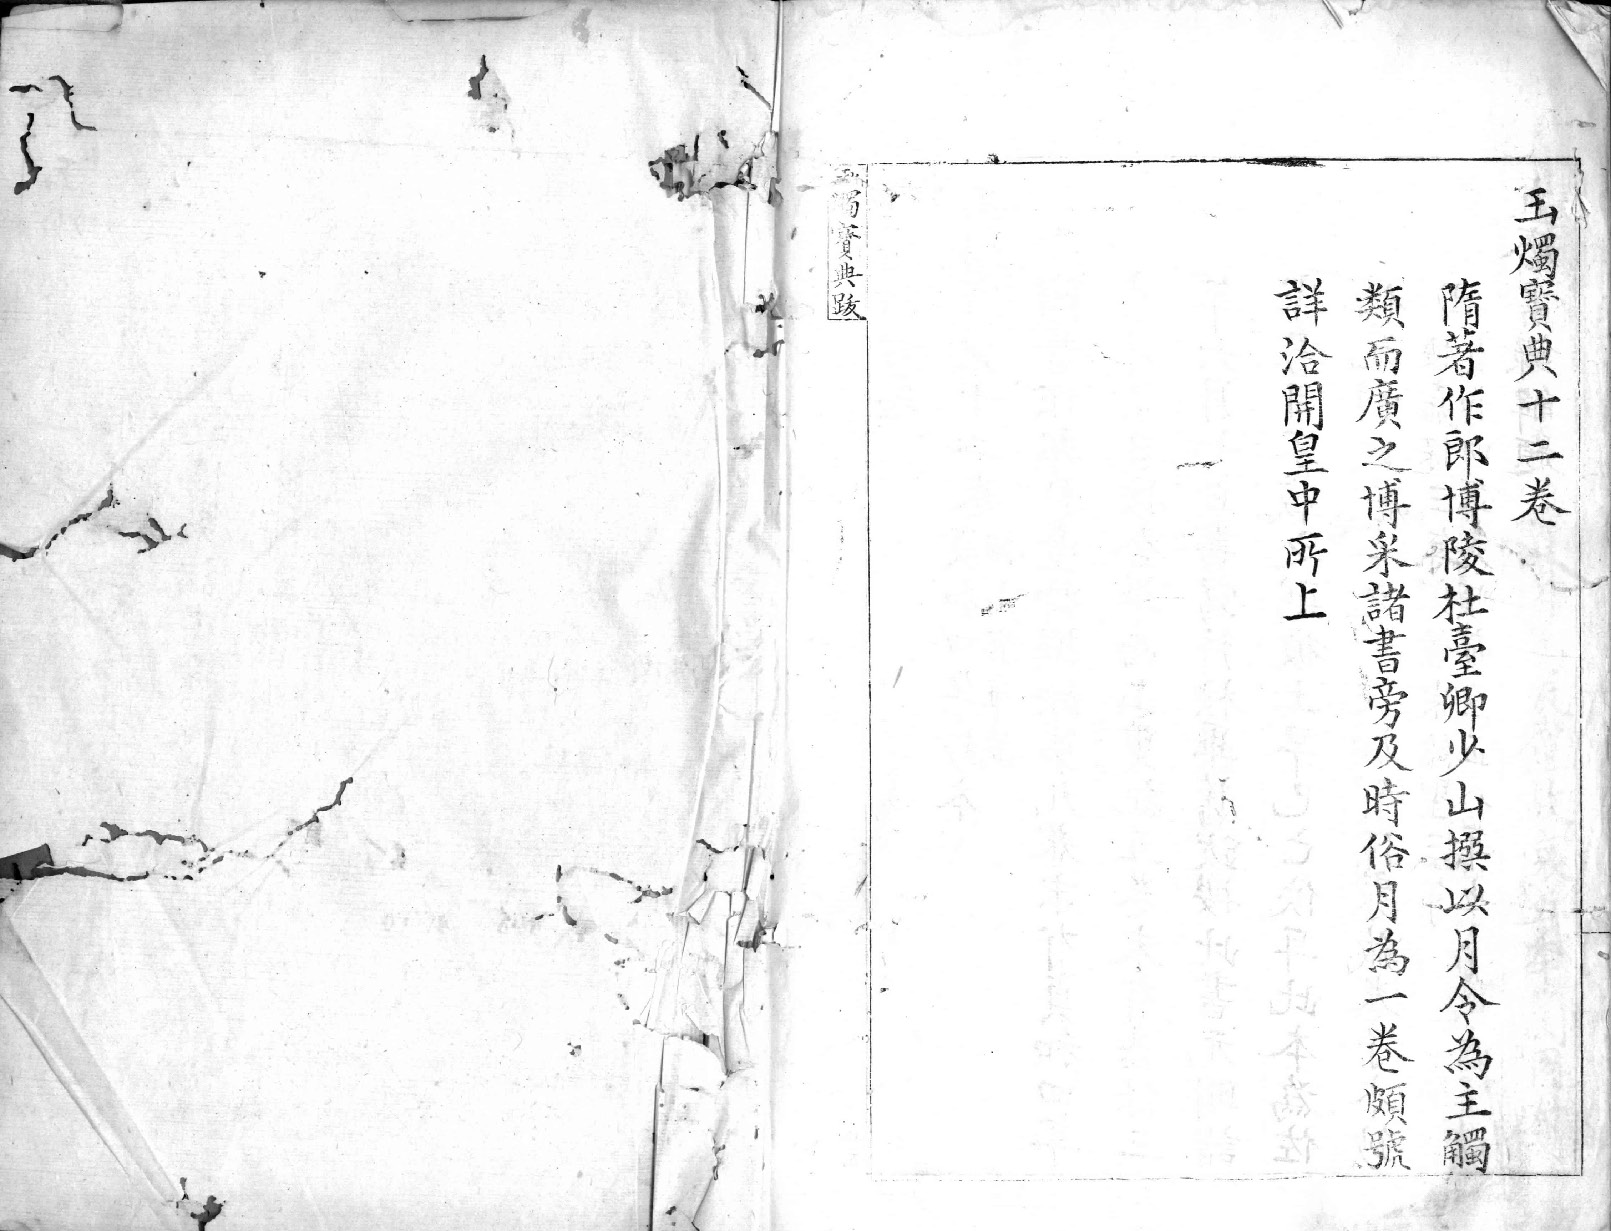 玉燭寶典十二卷
隋著作郎博陵杜臺卿少山撰以月令為主觸
類而廣之博采諸書旁及時俗月為一卷頗號
詳洽開皇中所上
玉燭寶典跋